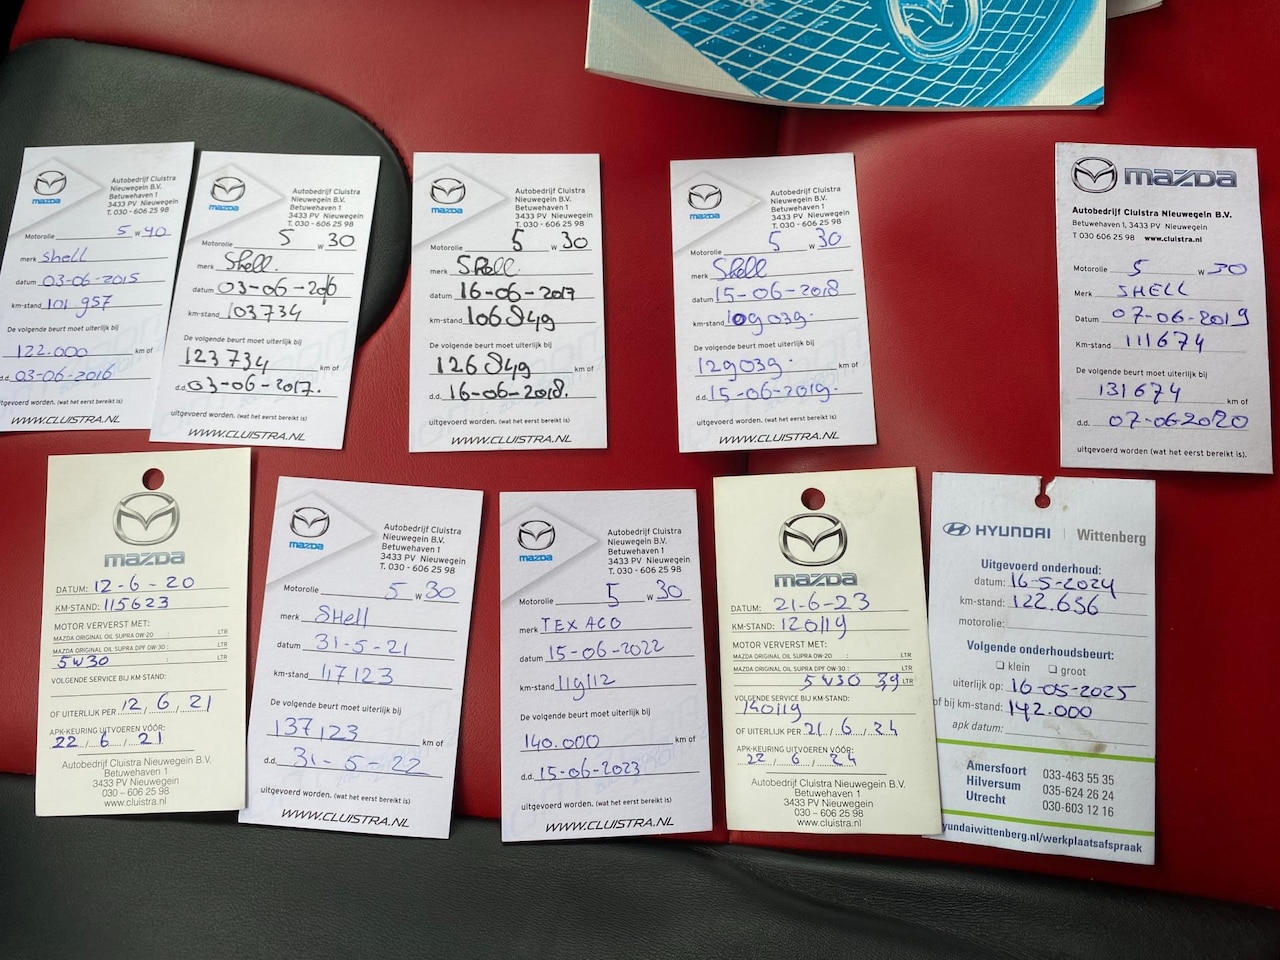 mazda
Autobedrijf Cluistra
Nieuwegein B.V.
Betuwehaven 1
3433 PV Nieuwegein
T. 030 - 606 25 98
Motorolie 5 W 40
merk Shell
datum 03-06-2015
km-stand 101 957
De volgende beurt moet uiterlijk bij
122.000 km of
d.d. 03-06-2016
uitgevoerd worden. (wat het eerst bereikt is)
WWW.CLUISTRA.NL
mazda
Autobedrijf Cluistra
Nieuwegein B.V.
Betuwehaven 1
3433 PV Nieuwegein
T. 030 - 606 25 98
Motorolie 5 W 30
merk Shell.
datum 03-06-2016
km-stand 103734
De volgende beurt moet uiterlijk bij
123734 km of
d.d. 03-06-2017.
uitgevoerd worden. (wat het eerst bereikt is)
WWW.CLUISTRA.NL
mazda
Autobedrijf Cluistra
Nieuwegein B.V.
Betuwehaven 1
3433 PV Nieuwegein
T. 030 - 606 25 98
Motorolie 5 W 30
merk Shell
datum 16-06-2017
km-stand 106849
De volgende beurt moet uiterlijk bij
126849 km of
d.d. 16-06-2018.
uitgevoerd worden. (wat het eerst bereikt is)
WWW.CLUISTRA.NL
mazda
Autobedrijf Cluistra
Nieuwegein B.V.
Betuwehaven 1
3433 PV Nieuwegein
T. 030 - 606 25 98
Motorolie 5 W 30
merk Shell
datum 15-06-2018
km-stand 109039.
De volgende beurt moet uiterlijk bij
129039. km of
d.d. 15-06-2019.
uitgevoerd worden. (wat het eerst bereikt is)
WWW.CLUISTRA.NL
mazda
Autobedrijf Cluistra Nieuwegein B.V.
Betuwehaven 1, 3433 PV Nieuwegein
T 030 606 25 98 www.cluistra.nl
Motorolie 5 W 30
Merk SHELL
Datum 07-06-2019
Km-stand 111674
De volgende beurt moet uiterlijk bij
131674 km of
d.d. 07-06-2020
uitgevoerd worden (wat het eerst bereikt is).
mazda
DATUM: 12-6-20
KM-STAND: 115623
MOTOR VERVERST MET:
MAZDA ORIGINAL OIL SUPRA 0W-20 : LTR
MAZDA ORIGINAL OIL SUPRA DPF 0W-30 : LTR
5W30 LTR
VOLGENDE SERVICE BIJ KM-STAND:
OF UITERLIJK PER 12/6/21
APK-KEURING UITVOEREN VÓÓR:
22/6/21
Autobedrijf Cluistra Nieuwegein B.V.
Betuwehaven 1
3433 PV Nieuwegein
030 - 606 25 98
www.cluistra.nl
mazda
Autobedrijf Cluistra
Nieuwegein B.V.
Betuwehaven 1
3433 PV Nieuwegein
T. 030 - 606 25 98
Motorolie 5 W 30
merk SHell
datum 31-5-21
km-stand 117123
De volgende beurt moet uiterlijk bij
137123 km of
d.d. 31-5-22
uitgevoerd worden. (wat het eerst bereikt is)
WWW.CLUISTRA.NL
mazda
Autobedrijf Cluistra
Nieuwegein B.V.
Betuwehaven 1
3433 PV Nieuwegein
T. 030 - 606 25 98
Motorolie 5 W 30
merk TEXACO
datum 15-06-2022
km-stand 119112
De volgende beurt moet uiterlijk bij
140.000 km of
d.d. 15-06-2023
uitgevoerd worden. (wat het eerst bereikt is)
WWW.CLUISTRA.NL
mazda
DATUM: 21-6-23
KM-STAND: 120119
MOTOR VERVERST MET:
MAZDA ORIGINAL OIL SUPRA 0W-20 : LTR
MAZDA ORIGINAL OIL SUPRA DPF 0W-30 : LTR
5W30 3,9 LTR
VOLGENDE SERVICE BIJ KM-STAND:
140119
OF UITERLIJK PER 21/6/24
APK-KEURING UITVOEREN VÓÓR:
22/6/24
Autobedrijf Cluistra Nieuwegein B.V.
Betuwehaven 1
3433 PV Nieuwegein
030 - 606 25 98
www.cluistra.nl
HYUNDAI | Wittenberg
Uitgevoerd onderhoud:
datum: 16-5-2024
km-stand: 122.656
motorolie:
Volgende onderhoudsbeurt:
klein groot
uiterlijk op: 16-05-2025
of bij km-stand: 142.000
apk datum:
Amersfoort 033-463 55 35
Hilversum 035-624 26 24
Utrecht 030-603 12 16
yundaiwittenberg.nl/werkplaatsafspraak